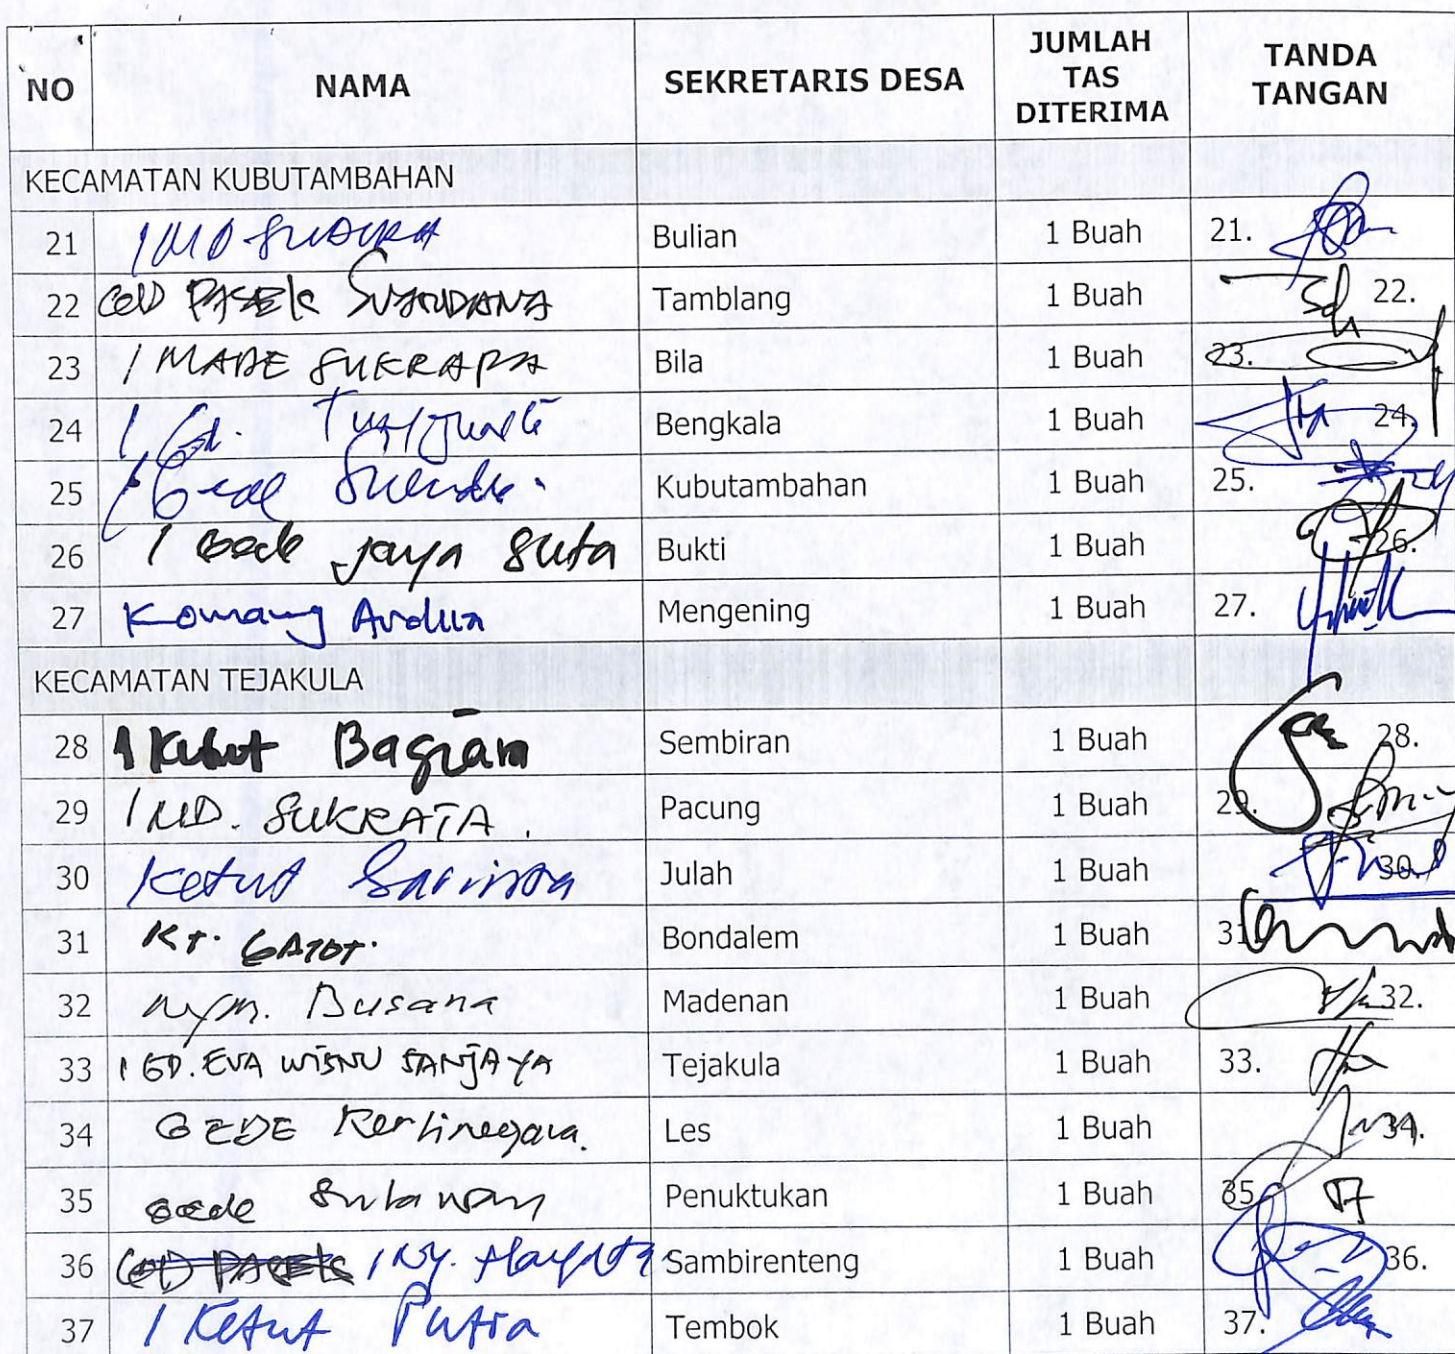 NO NAMA SEKRETARIS DESA JUMLAH TAS DITERIMA TANDA TANGAN
KECAMATAN KUBUTAMBAHAN
21 I MD Bulian 1 Buah 21.
22 GD PASEK SUARDANA Tamblang 1 Buah 22.
23 I MADE SUKRADA Bila 1 Buah 23.
24 I Gd. Bengkala 1 Buah 24.
25 I Gede Kubutambahan 1 Buah 25.
26 I Gede Jaya Suta Bukti 1 Buah 26.
27 Komang Ardita Mengening 1 Buah 27.
KECAMATAN TEJAKULA
28 I Ketut Bagiam Sembiran 1 Buah 28.
29 I MD. SUKRATA. Pacung 1 Buah 29.
30 Ketut Julah 1 Buah 30.
31 KT. GATOT. Bondalem 1 Buah 31.
32 Nym. Busana Madenan 1 Buah 32.
33 I GD. EVA WISNU SANJAYA Tejakula 1 Buah 33.
34 GEDE Kertinegara. Les 1 Buah 34.
35 Gede Sutawan Penuktukan 1 Buah 35.
36 GD PASEK I Ny. Sambirenteng 1 Buah 36.
37 I Ketut Putra Tembok 1 Buah 37.